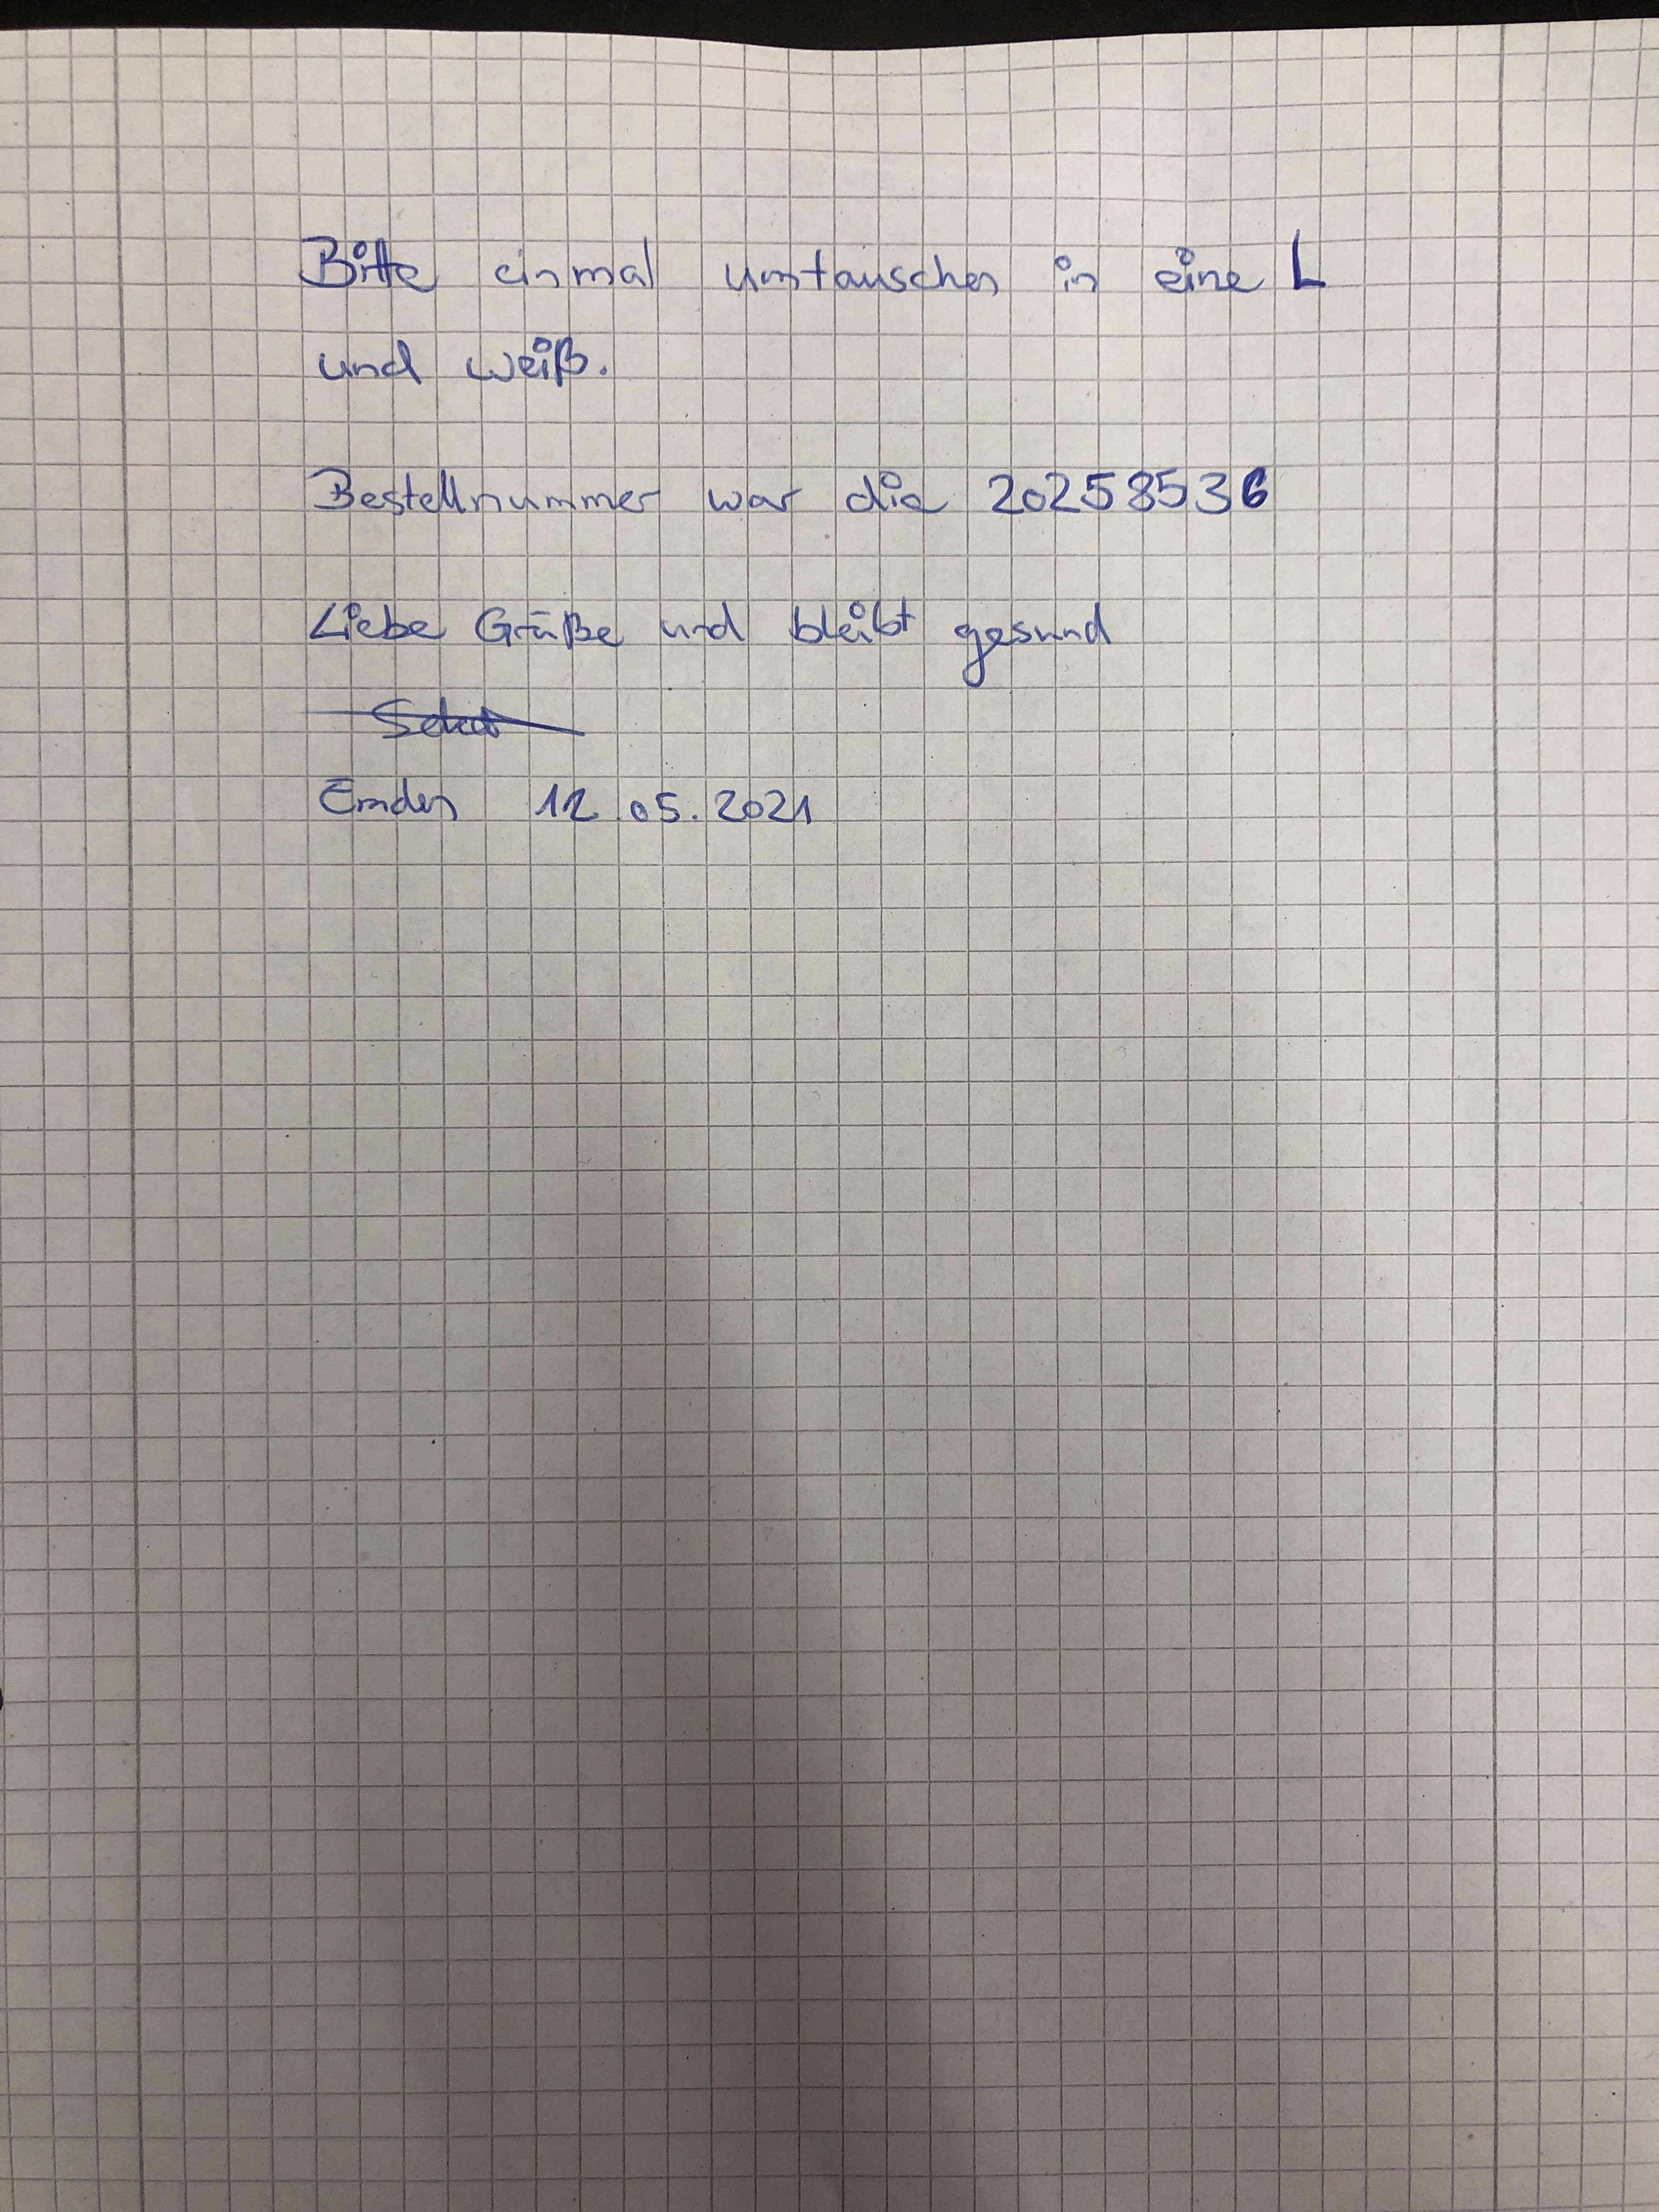 Bitte einmal umtauschen in eine L
und weiß.
Bestellnummer war die 20258536
Liebe Grüße und bleibt gesund
Emden 12.05.2021